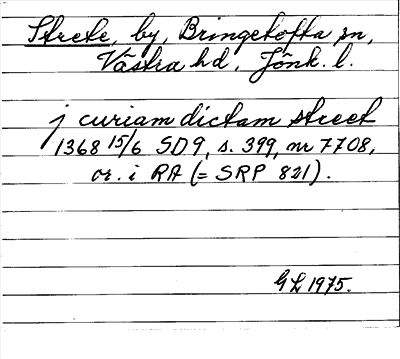 Strete, by, Bringetofta sn,
Västra hd, Jönk. l.
j curiam dictam street
1368 15/6 SD9, s. 399, nr 7708,
or. i RA (= SRP 821).
GL 1975.